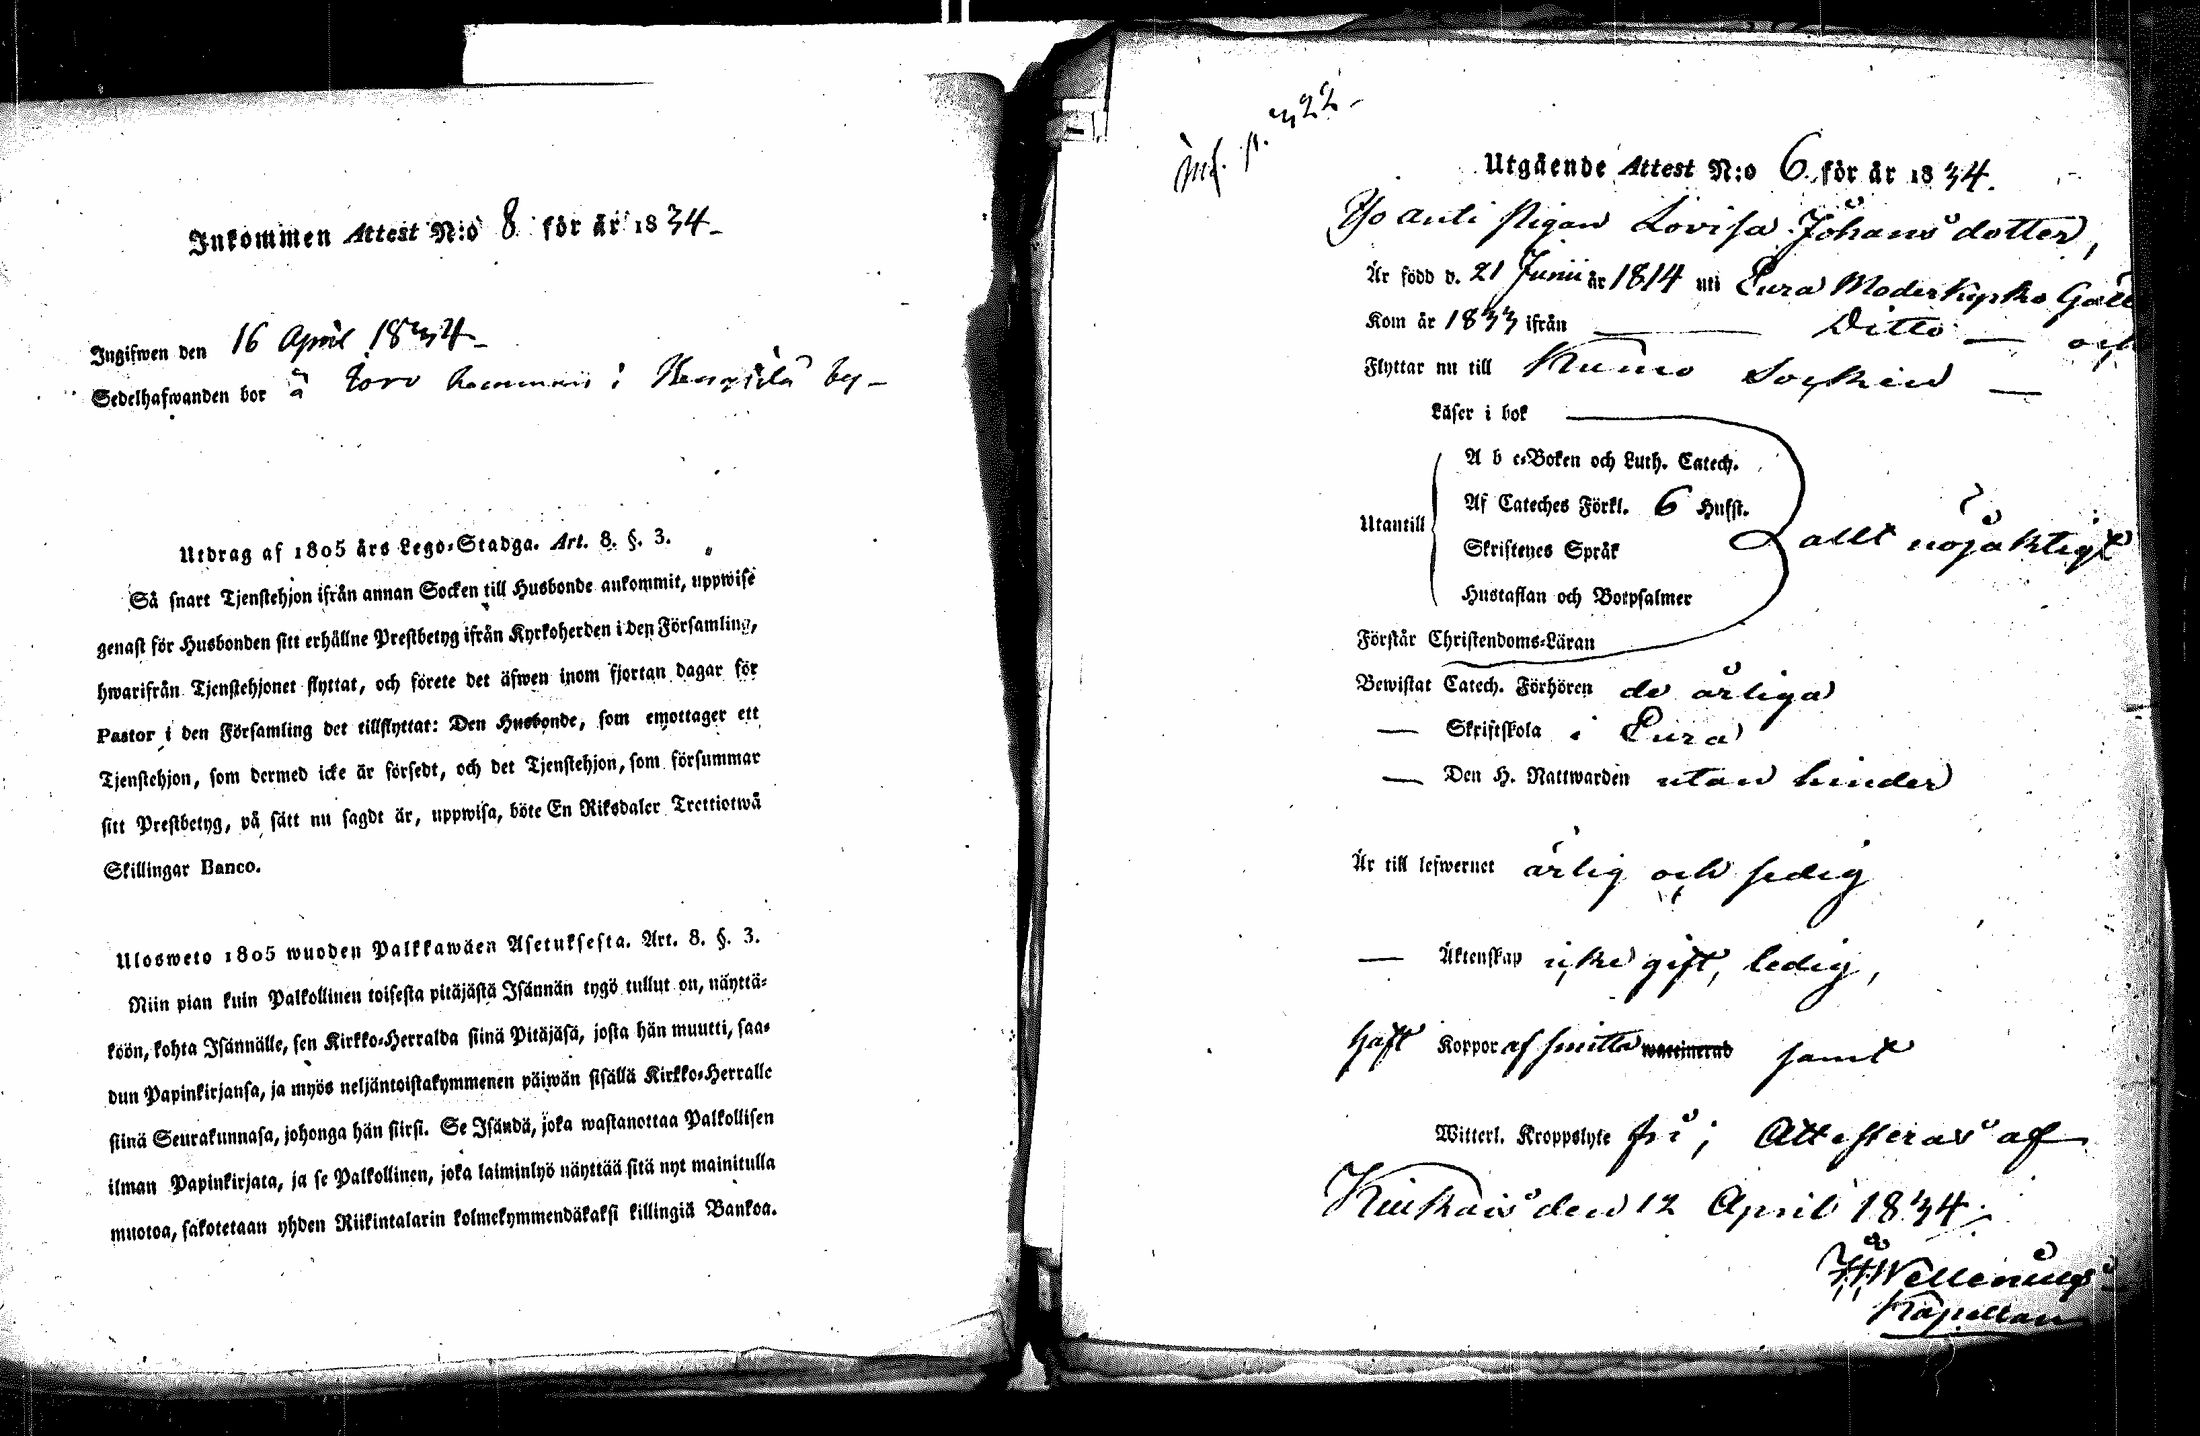 Inkommen Attest N:o 8 för år 1834
Ingifwen den 16 April 1834
Sedelhafwanden bor å i by
Utdrag af 1805 års Lego-Stadga. Art. 8. §. 3.
Så snart Tjenstehjon ifrån annan Socken till Husbonde ankommit, uppwise
genast för Husbonden sitt erhållne Prestbetyg ifrån Kyrkoherden i den Församling,
hwarifrån Tjenstehjonet flyttat, och förete det äfwen inom fjortan dagar för
Pastor i den Församling det tillflyttat: Den Husbonde, som emottager ett
Tjenstehjon, som dermed icke är försedt, och det Tjenstehjon, som försummar
sitt Prestbetyg, på sätt nu sagdt är, uppwisa, böte En Riksdaler Trettiotwå
Skillingar Banco.
Ulosweto 1805 wuoden Palkkawäen Asetuksesta. Art. 8. §. 3.
Niin pian kuin Palkollinen toisesta pitäjästä Isännän tygö tullut on, näyttä-
köön, kohta Isännälle, sen Kirkko-Herralda siinä Pitäjäsä, josta hän muutti, saa-
dun Papinkirjansa, ja myös neljäntoistakymmenen päiwän sisällä Kirkko-Herralle
siinä Seurakunnasa, johonga hän siirsi. Se Isändä, joka wastanottaa Palkollisen
ilman Papinkirjata, ja se Palkollinen, joka laiminlyö näyttää sitä nyt mainitulla
muotoa, sakotetaan yhden Riikintalarin kolmekymmendäkaksi killingiä Bankoa.
p. 322
Utgående Attest N:o 6 för år 1834.
pigan Lovisa Johansdotter,
Är född d. 21 Junii år 1814 uti Eura Moderkyrko
Kom år 1833 ifrån Ditto och
Flyttar nu till Kumo Socken
Läser i bok
Utantill
A b c-Boken och Luth. Catech.
Af Cateches Förkl. 6 Hufst.
Skriftenes Språk
Hustaflan och Botpsalmer
allt nöjaktigt
Förstår Christendoms-Läran
Bewistat Catech. Förhören de årliga
— Skriftskola i Eura
— Den H. Nattwarden utan hinder
Är till lefwernet ärlig och sedig
— Äktenskap icke gift, ledig,
haft Koppor af smitta waccinerad samt
Witterl. Kroppslyte fri; Attesteras af
Kiukais den 12 April 1834.
Kapellan